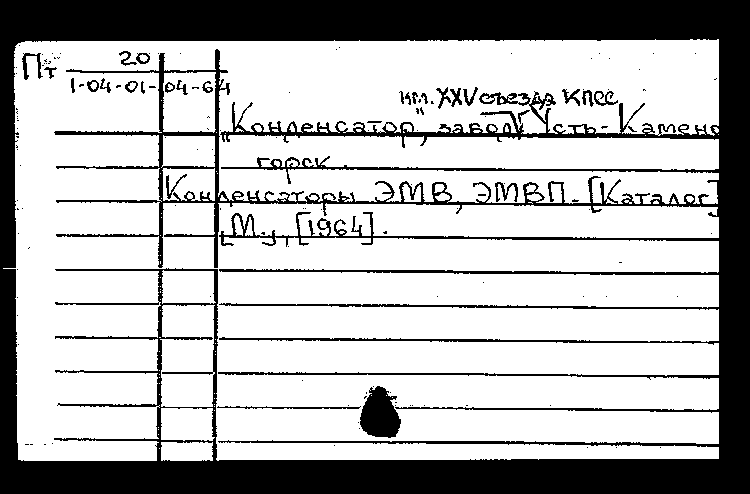 Пт 20
1-04-01-04-64
им. XXV съезда КПСС
"Конденсатор", завод, Усть-Камено
горск.
Конденсаторы ЭМВ, ЭМВП. [Каталог]
[М.], [1964].